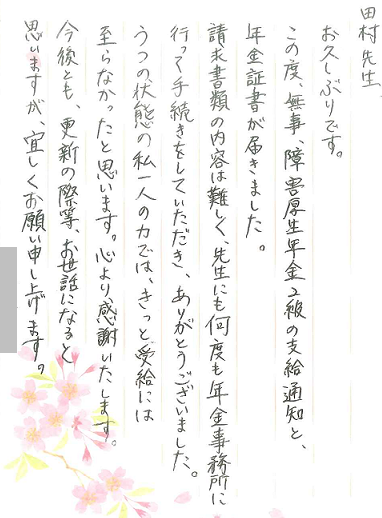 田村先生、
お久しぶりです。
この度、無事、障害厚生年金2級の支給通知と、
年金証書が届きました。
請求書類の内容は難しく、先生にも何度も年金事務所に
行って手続きをしていただき、ありがとうございました。
うつの状態の私一人の力では、きっと受給には
至らなかったと思います。心より感謝いたします。
今後とも、更新の際等、お世話になると
思いますが、宜しくお願い申し上げます。